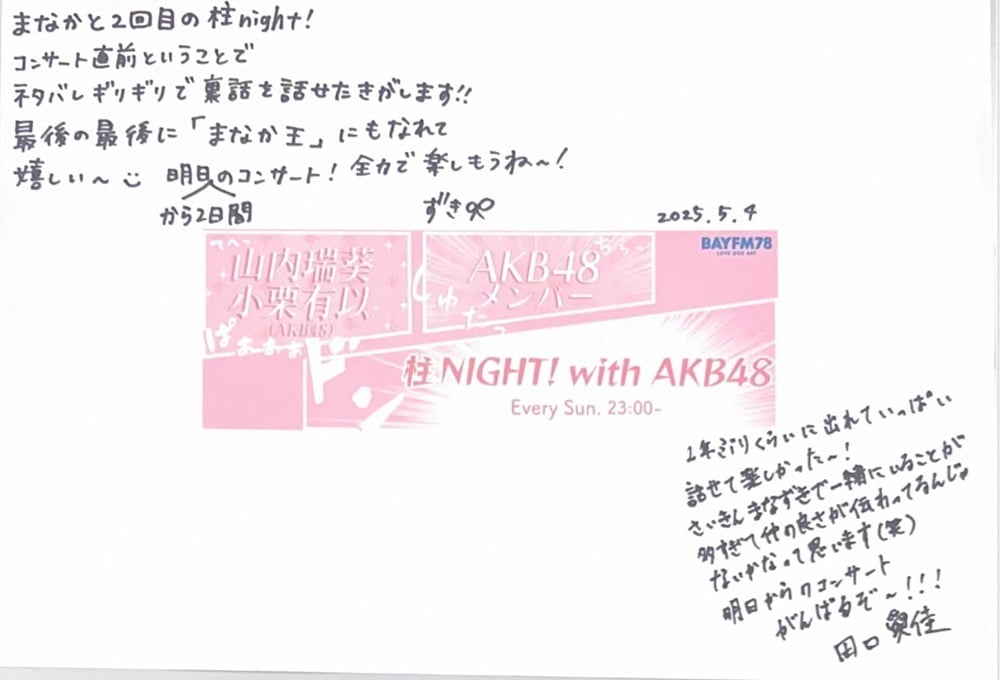 まなかと2回目の柱night!
コンサート直前ということで
ネタバレギリギリで裏話を話せたきがします!!
最後の最後に「まなか王」にもなれて
嬉しい〜 明日のコンサート! 全力で楽しもうね〜!
から2日間
ずき
2025.5.4
てへっ
山内瑞葵
小栗有以
(AKB48)
ぱぁぁぁぁ
じゅたっ
AKB48
メンバー
ちらっ
BAYFM78
LOVE OUR BAY
ドン
柱NIGHT! with AKB48
Every Sun. 23:00-
1年ぶりくらいに出れていっぱい
話せて楽しかった〜!
さいきんまなずきで一緒にいることが
多すぎて仲の良さが伝わってるんじゃ
ないかなって思います(笑)
明日からのコンサート
がんばるぞ〜!!!
田口愛佳